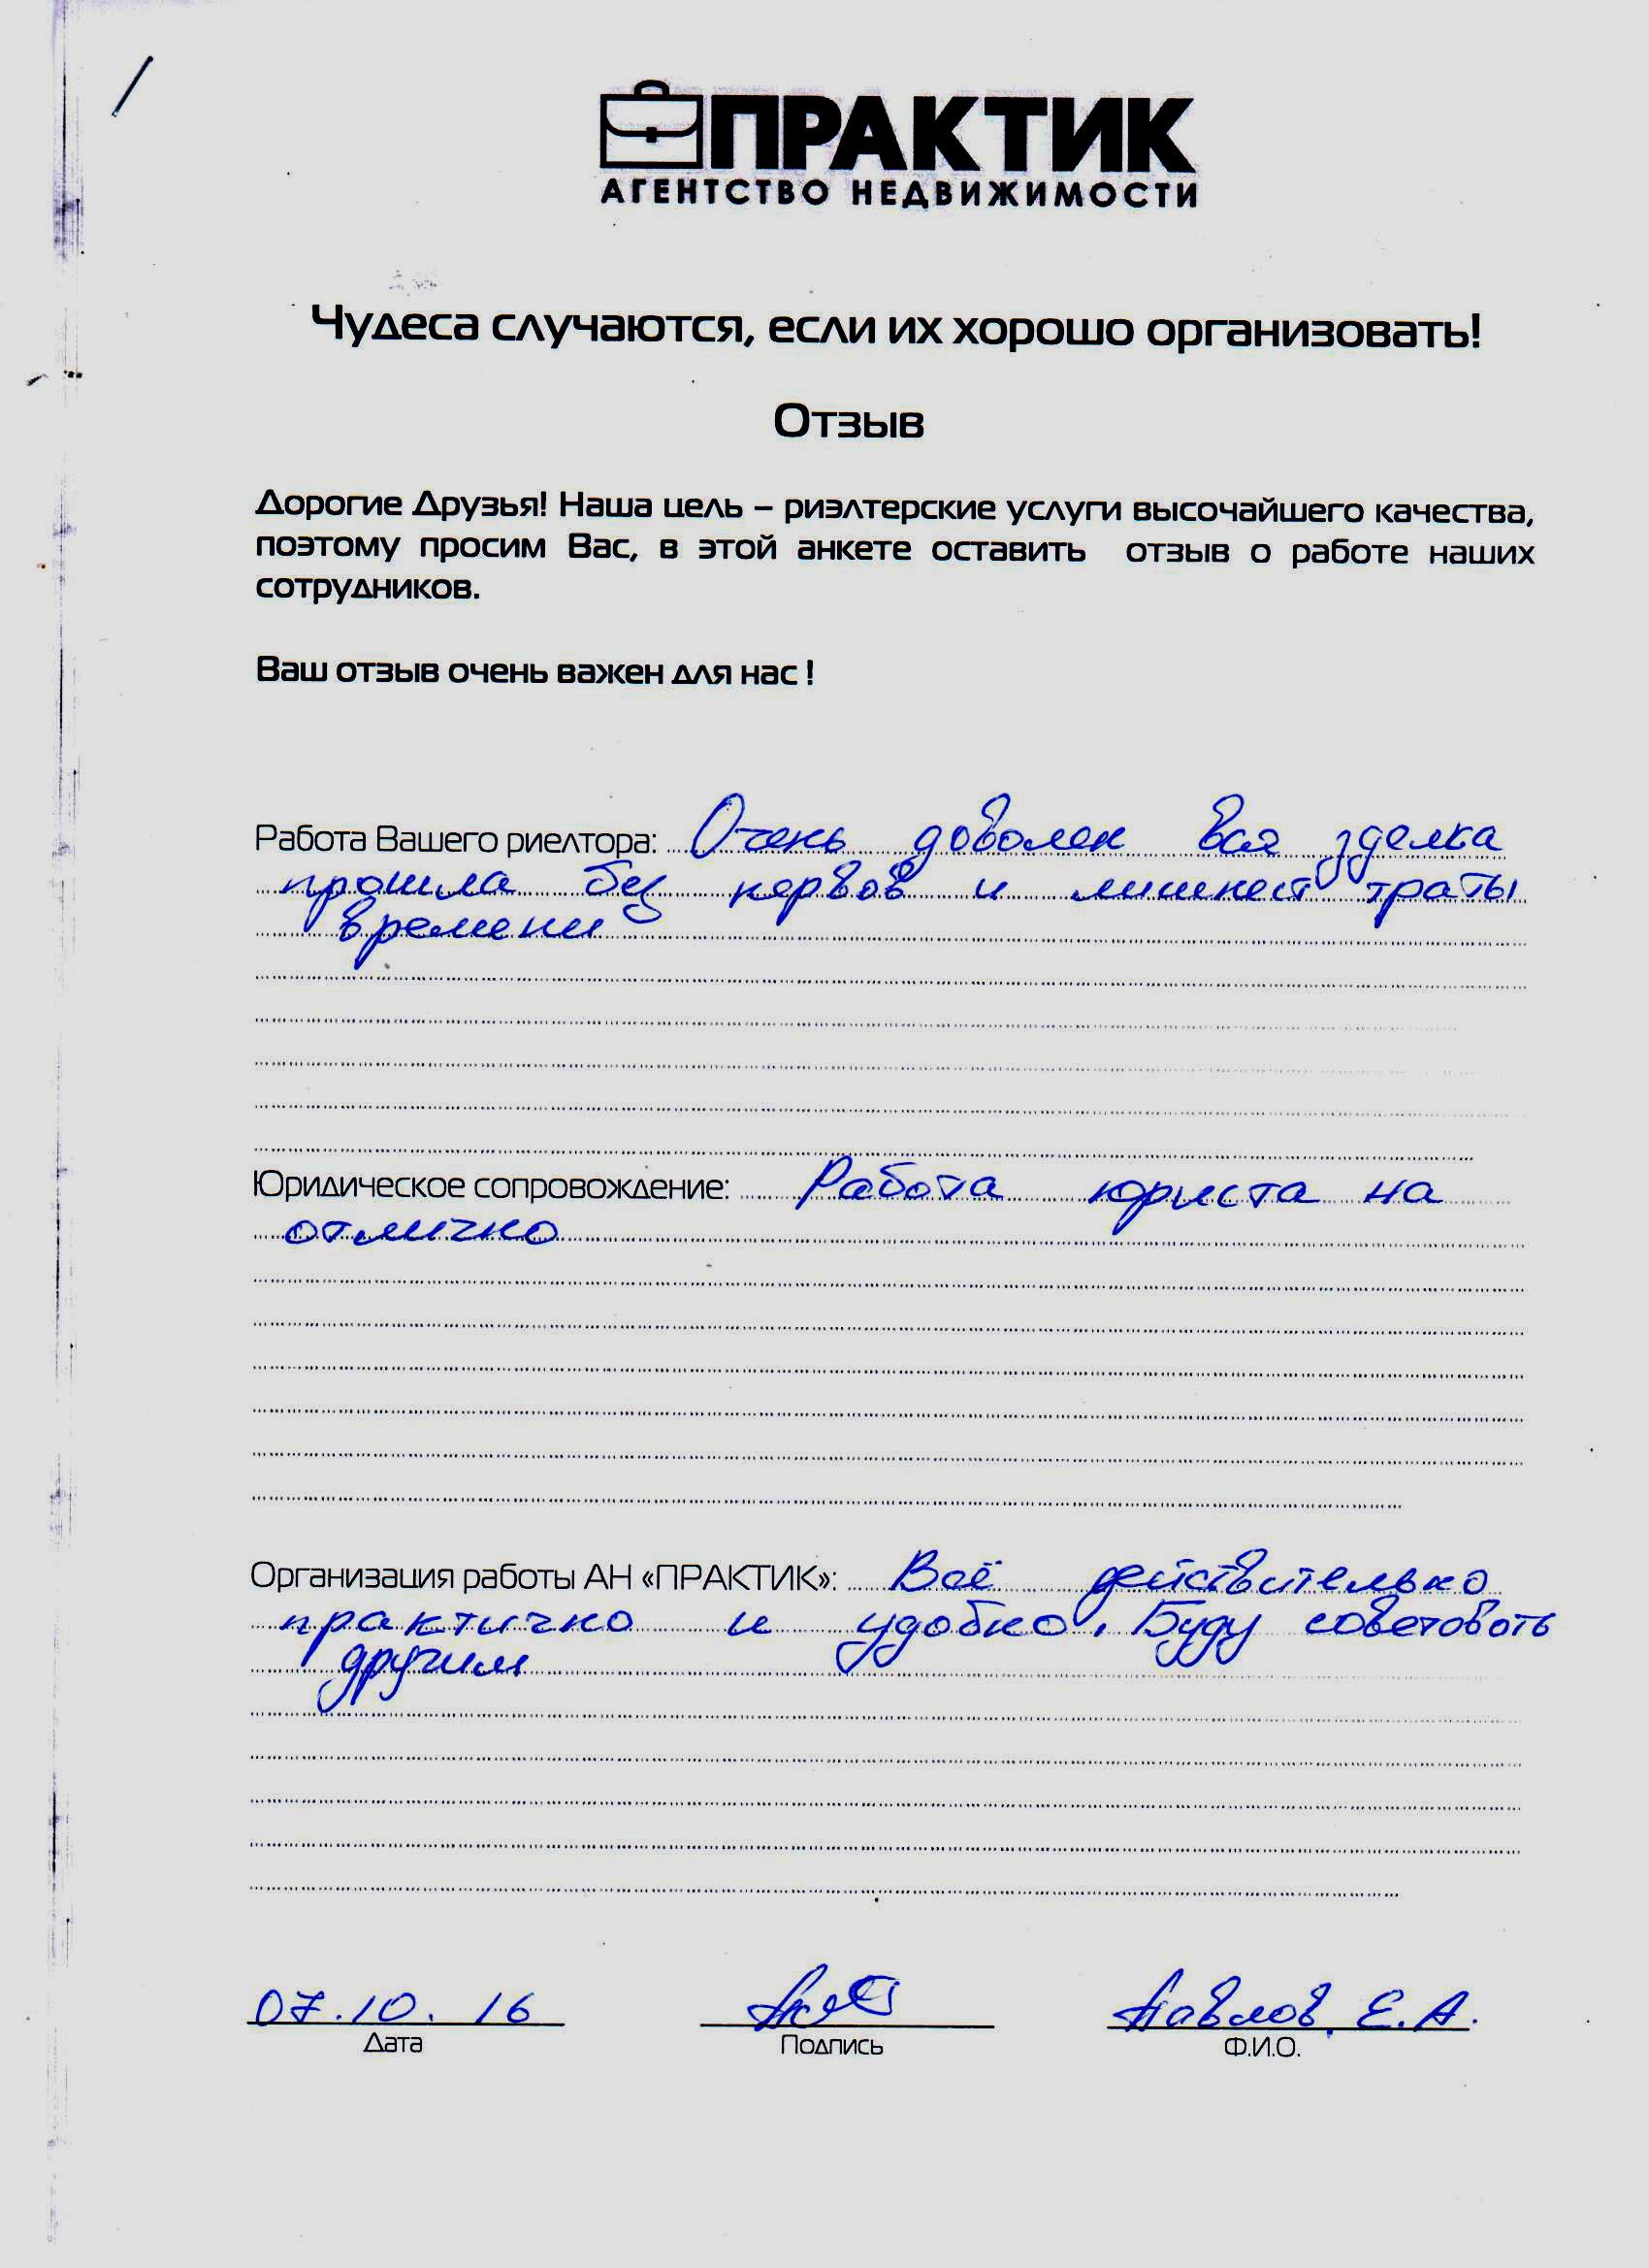 ПРАКТИК
АГЕНТСТВО НЕДВИЖИМОСТИ
Чудеса случаются, если их хорошо организовать!
Отзыв
Дорогие Друзья! Наша цель – риэлтерские услуги высочайшего качества,
поэтому просим Вас, в этой анкете оставить отзыв о работе наших
сотрудников.
Ваш отзыв очень важен для нас !
Работа Вашего риелтора: Очень доволен вся зделка
прошла без нервов и траты
времени
Юридическое сопровождение: Работа юриста на
отлично
Организация работы АН «ПРАКТИК»: Всё действительно
практично и удобно. Буду советовоть
другим
07.10.16 Павлов Е.А.
Дата Подпись Ф.И.О.